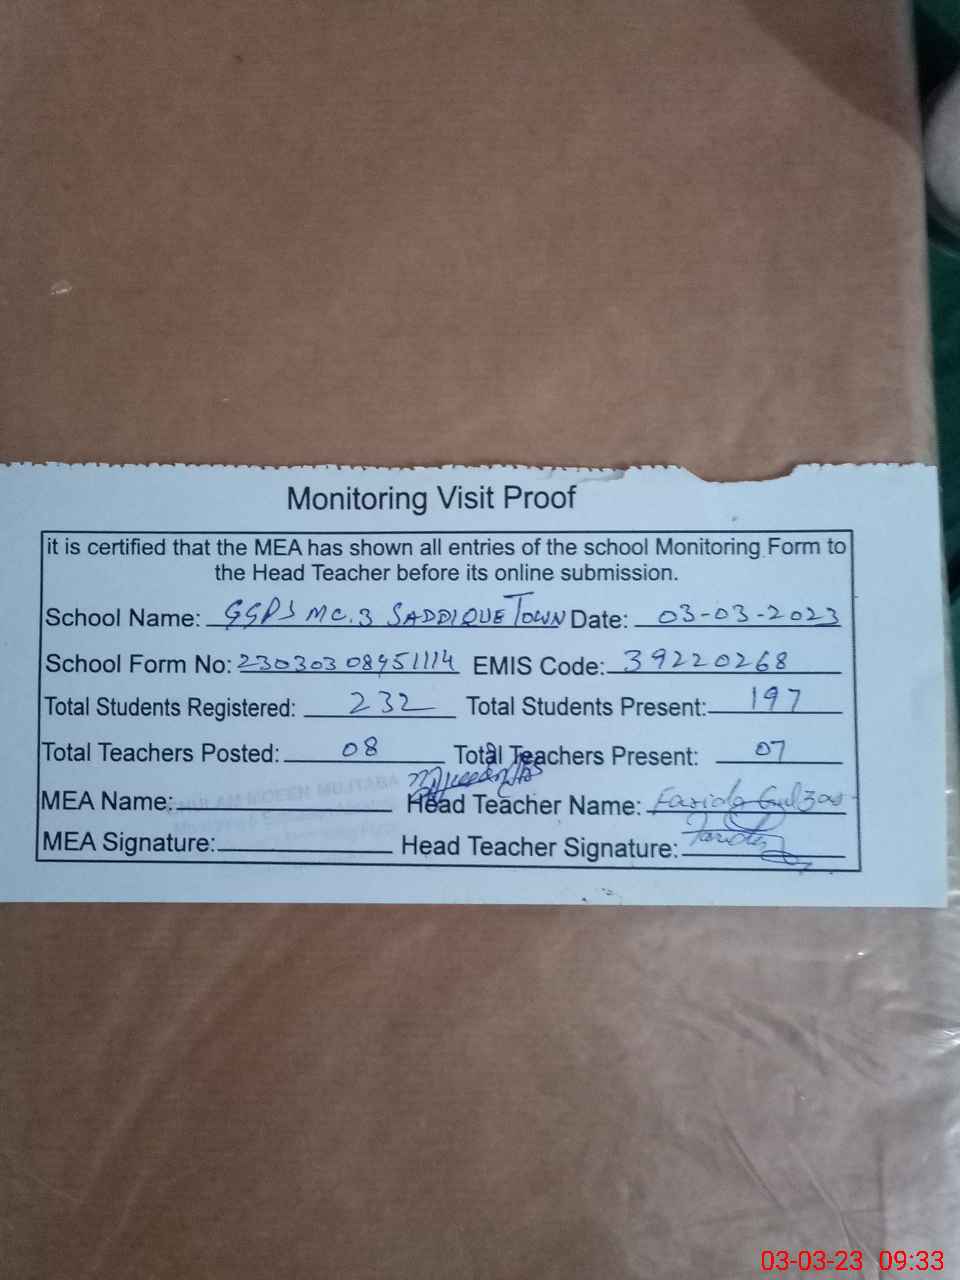 Monitoring Visit Proof
it is certified that the MEA has shown all entries of the school Monitoring Form to
the Head Teacher before its online submission.
School Name: GGPS MC.3 SADDIQUE TOWN Date: 03-03-2023
School Form No: 23030308951114 EMIS Code: 39220268
Total Students Registered: 232 Total Students Present: 197
Total Teachers Posted: 08 Total Teachers Present: 07
MEA Name: GHULAM MOEEN MUJTABA Head Teacher Name: Farida Gulzar
MEA Signature: Head Teacher Signature: Farida
03-03-23 09:33